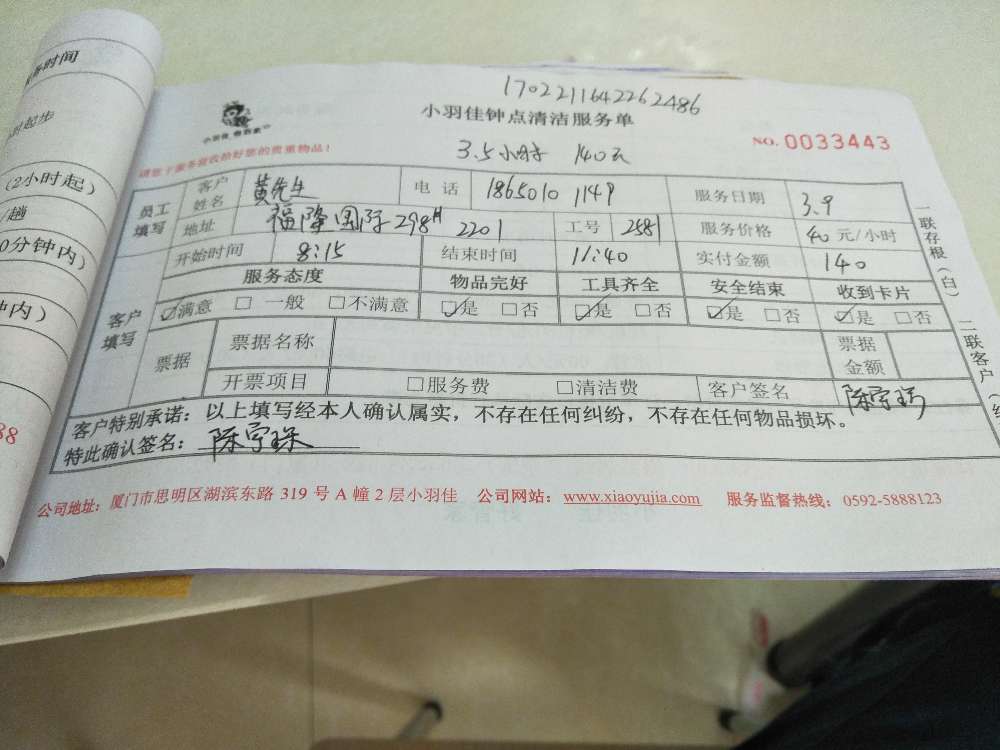 1702211642262486
小羽佳钟点清洁服务单
NO. 0033443
3.5小时 140元
小羽佳 您的管家
请您于服务前收拾好您的贵重物品!
员工填写 客户姓名 黄先生 电话 18650101149 服务日期 3.9
地址 福隆国际298# 2201 工号 2581 服务价格 40元/小时
开始时间 8:15 结束时间 11:40 实付金额 140
客户填写 服务态度 物品完好 工具齐全 安全结束 收到卡片
☑满意 □一般 □不满意 ☑是 □否 ☑是 □否 ☑是 □否 ☑是 □否
票据 票据名称 票据金额
开票项目 □服务费 □清洁费 客户签名
客户特别承诺:以上填写经本人确认属实,不存在任何纠纷,不存在任何物品损坏。
特此确认签名:
公司地址:厦门市思明区湖滨东路 319 号 A 幢 2 层小羽佳 公司网站:www.xiaoyujia.com 服务监督热线:0592-5888123
一联存根(白)
二联客户
时间
小时起步
(2小时起)
/趟
0分钟内)
钟内)
88